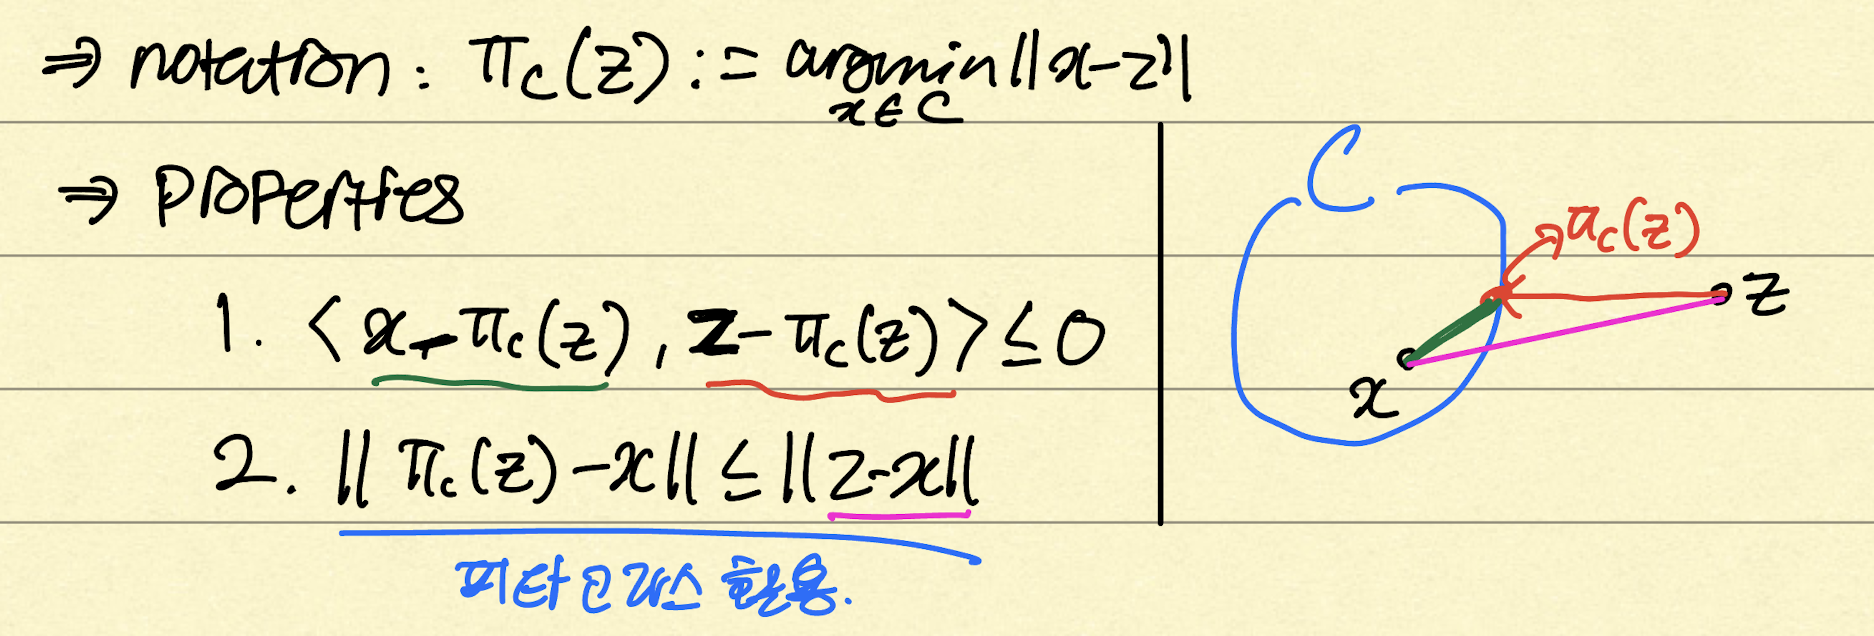 ⇒ notation : π_C(z) := argmin ||x-z||
x∈C
⇒ properties
1. < x - π_C(z), z - π_C(z) > ≤ 0
2. || π_C(z) - x || ≤ || z-x ||
피타고라스 활용.
C
π_C(z)
z
x